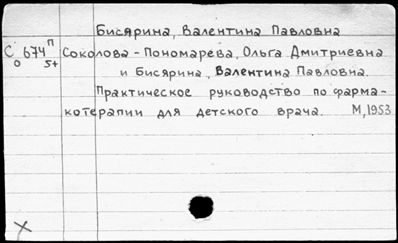 Бисярина, Валентина Павловна
С 674 П Соколова-Пономарева, Ольга Дмитриевна
о 5+ и Бисярина, Валентина Павловна.
Практическое руководство по фарма-
котерапии для детского врача. М, 1953